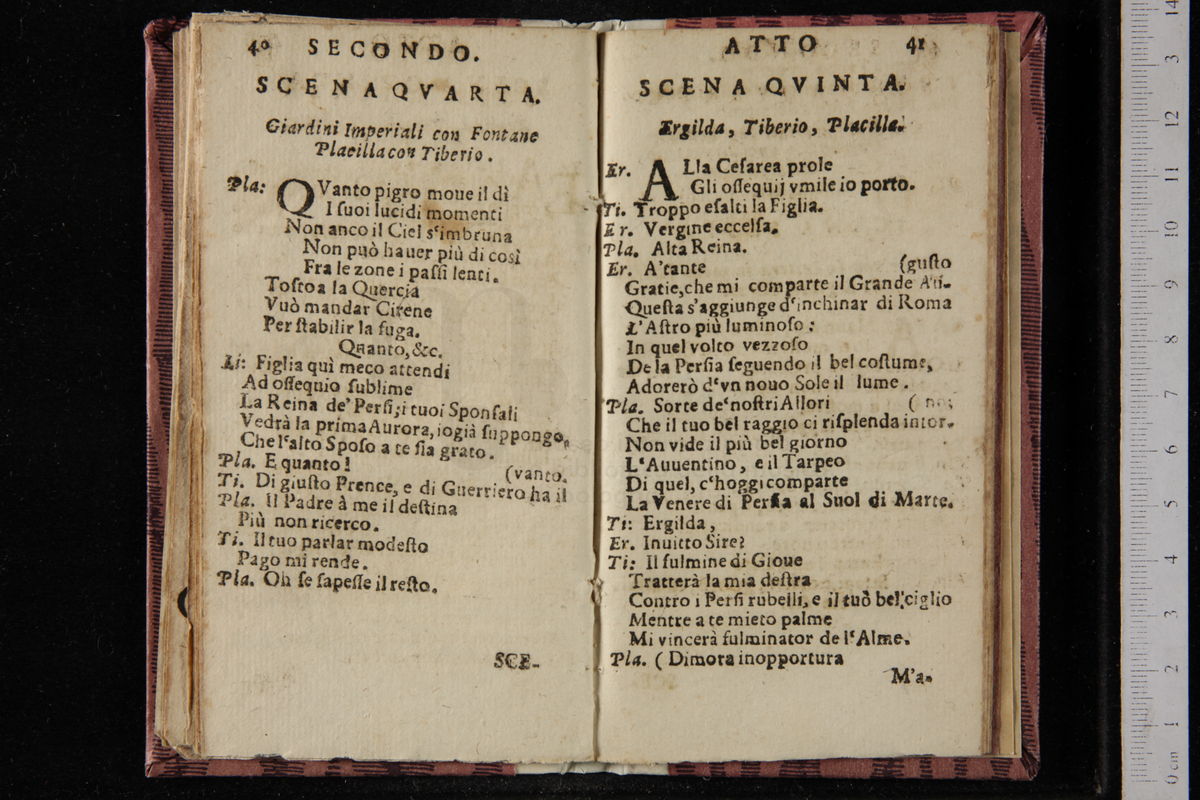 40 SECONDO.
SCENA QVARTA.
Giardini Imperiali con Fontane
Placilla con Tiberio.
Pla: QVanto pigro moue il dì
I ſuoi lucidi momenti
Non anco il Ciel s'imbruna
Non può hauer più di così
Fra le zone i paſſi lenti.
Toſto a la Quercia
Vuò mandar Cirene
Per ſtabilir la fuga.
Quanto, &c.
Ti: Figlia quì meco attendi
Ad oſſequio ſublime
La Reina de' Perſi; i tuoi Sponſali
Vedrà la prima Aurora, io già ſuppongo,
Che l'alto Spoſo a te ſia grato.
Pla. E quanto!
(vanto.
Ti. Di giuſto Prence, e di Guerriero ha il
Pla. Il Padre à me il deſtina
Più non ricerco.
Ti. Il tuo parlar modeſto
Pago mi rende.
Pla. Oh ſe ſapeſſe il reſto.
SCE-
ATTO 41
SCENA QVINTA.
Ergilda, Tiberio, Placilla.
Er. ALla Ceſarea prole
Gli oſſequij vmile io porto.
Ti. Troppo eſalti la Figlia.
Er. Vergine eccelſa.
Pla. Alta Reina.
Er. A'tante (guſto
Gratie, che mi comparte il Grande Au-
Queſta s'aggiunge d'inchinar di Roma
L'Aſtro più luminoſo:
In quel volto vezzoſo
De la Perſia ſeguendo il bel coſtume,
Adorerò d'vn nouo Sole il lume.
Pla. Sorte de'noſtri Allori ( no;
Che il tuo bel raggio ci riſplenda intor-
Non vide il più bel giorno
L'Auuentino, e il Tarpeo
Di quel, c'hoggi comparte
La Venere di Perſia al Suol di Marte.
Ti: Ergilda,
Er. Inuitto Sire?
Ti: Il fulmine di Gioue
Tratterà la mia deſtra
Contro i Perſi rubelli, e il tuo bel ciglio
Mentre a te mieto palme
Mi vincerà fulminator de l'Alme.
Pla. ( Dimora inopportura
M'a-